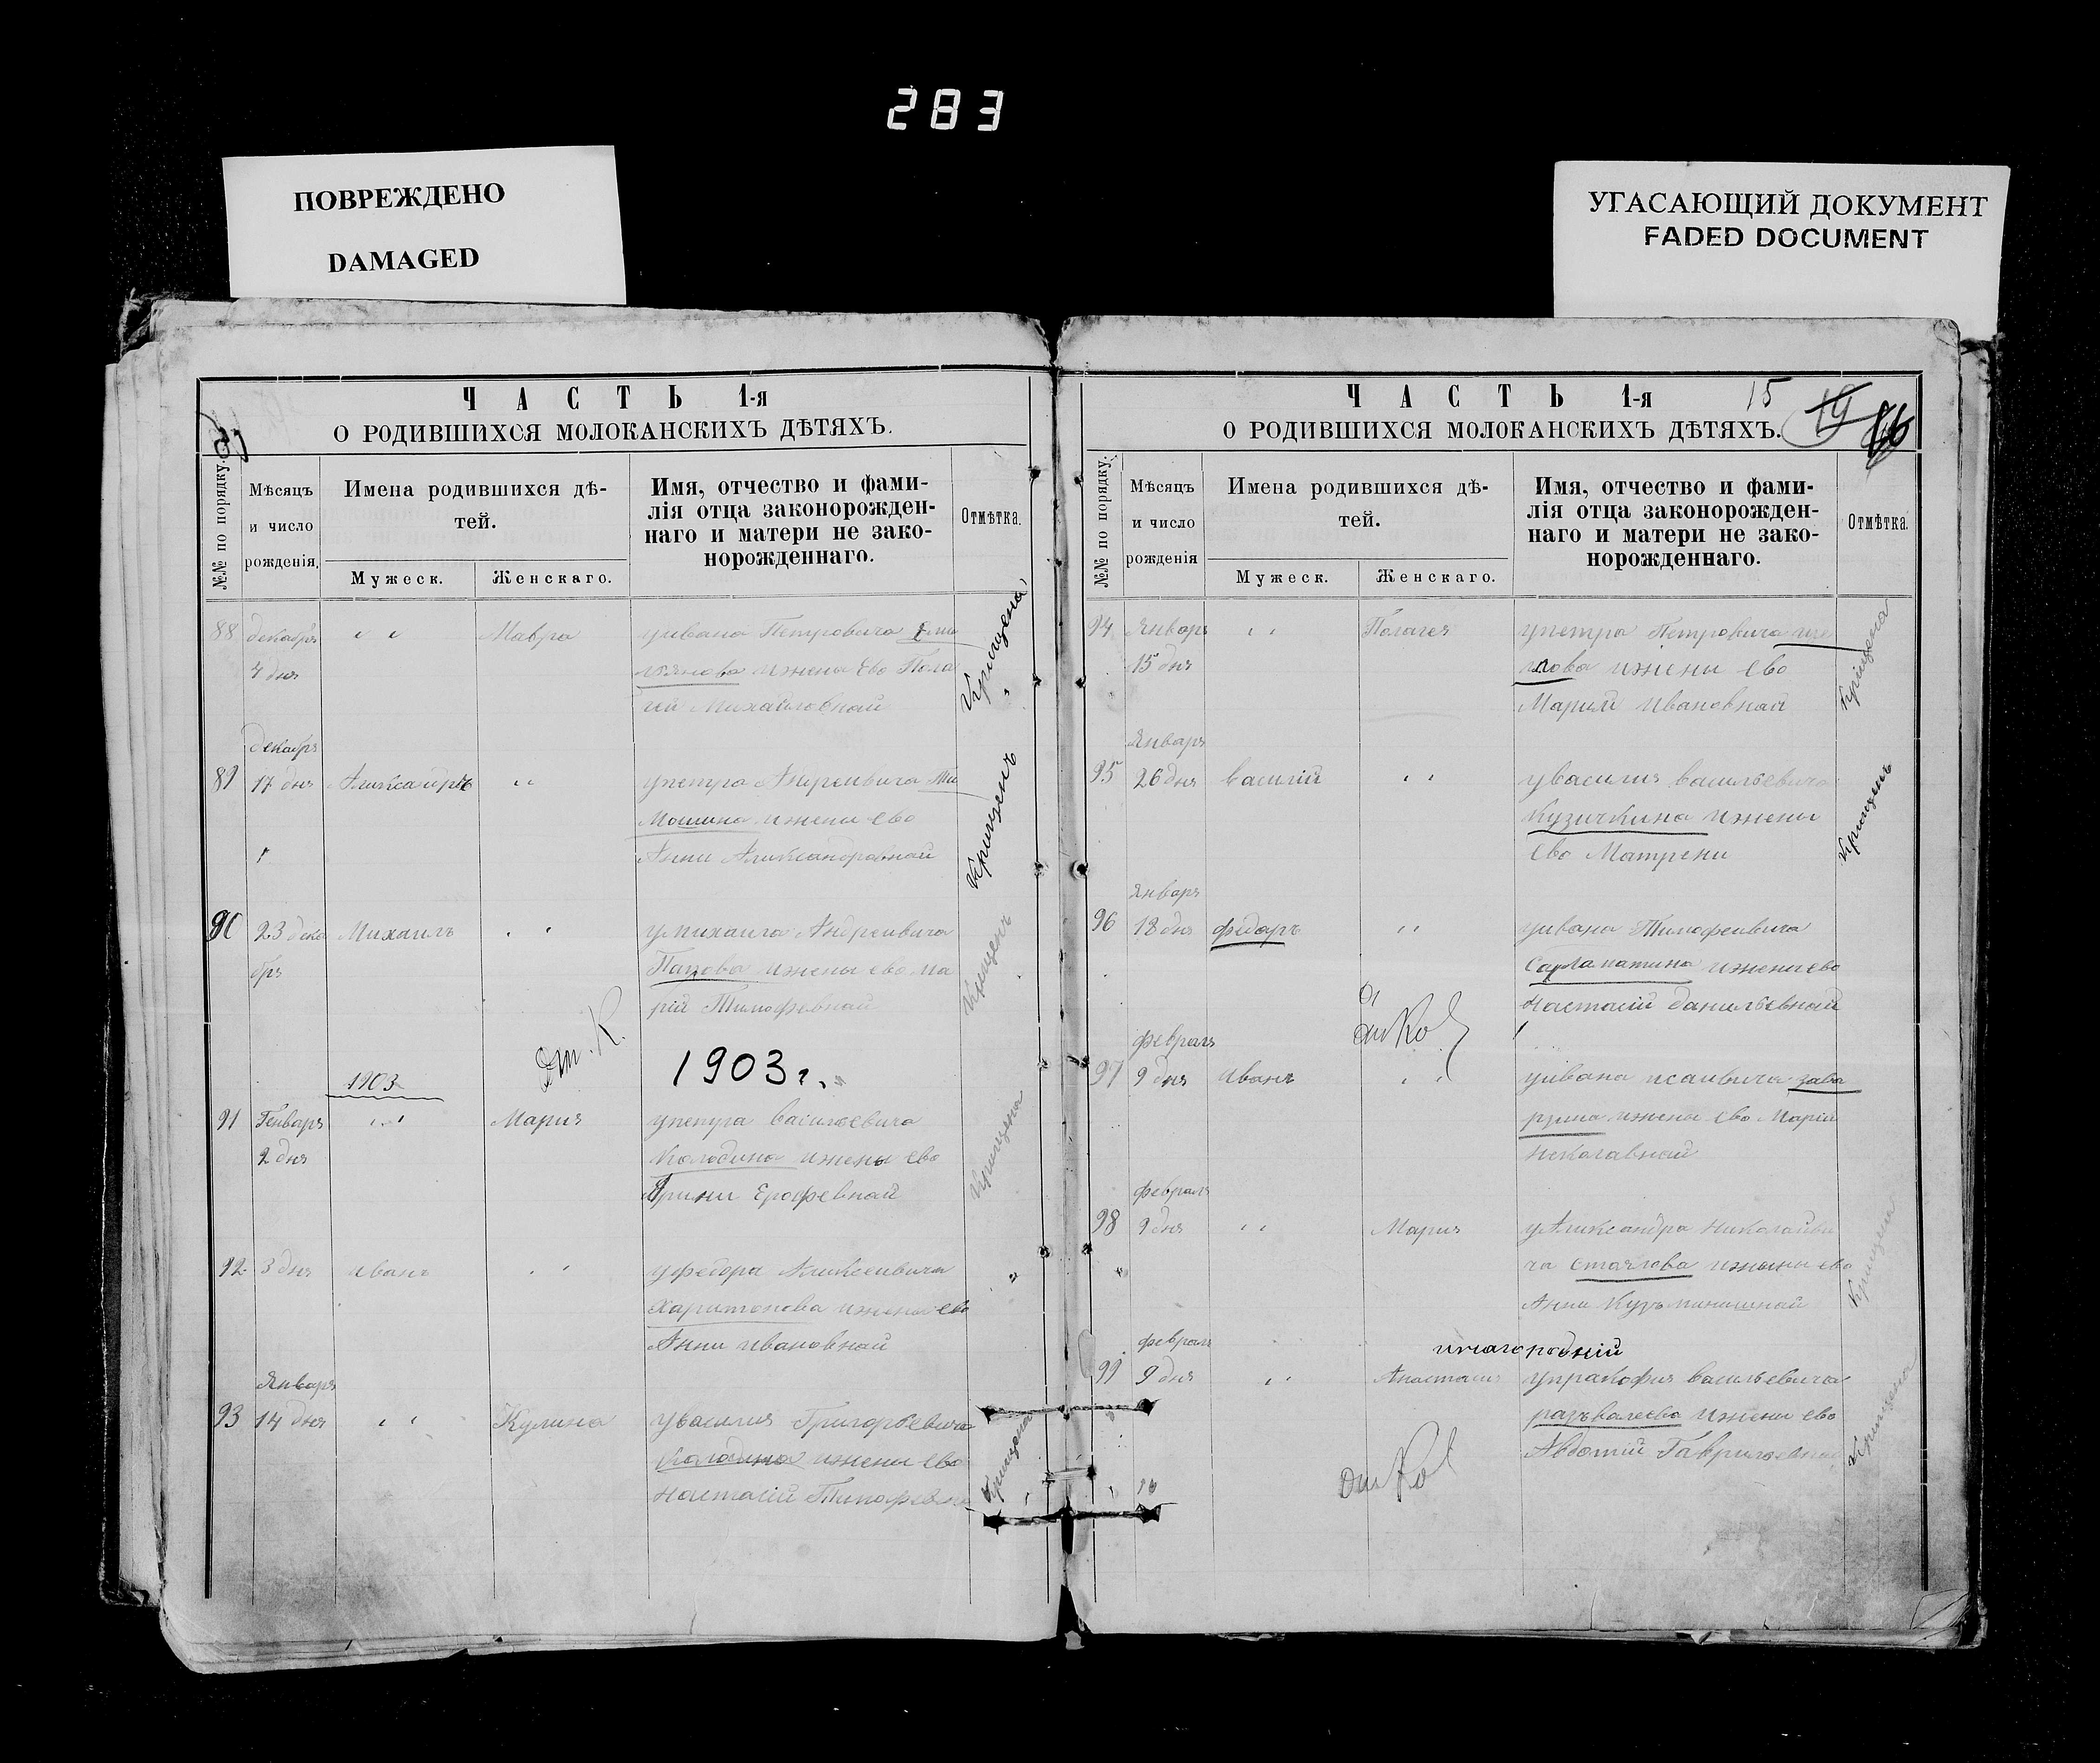 283
ПОВРЕЖДЕНО
DAMAGED
УГАСАЮЩИЙ ДОКУМЕНТ
FADED DOCUMENT
ЧАСТЬ 1-я
О РОДИВШИХСЯ МОЛОКАНСКИХЪ ДѢТЯХЪ.
№№ по порядку.
Мѣсяцъ
и число
рожденія.
Имена родившихся дѣ-
тей.
Мужеск.
Женскаго.
Имя, отчество и фами-
лія отца законорожден-
наго и матери не зако-
норожденнаго.
Отмѣтка.
88 декабря " " Мавра уивана Петровича Еми
4 дня льянова ижены Ево Пела
гии Михайловнай
Крищена
декабря
89 17 дня Александръ " " упетра Андреивича Ти
Мошина ижени Ево
Анни Александровнай
Крищенъ
90 23 дека Михаилъ " " умихаила Андреивича
бря Попова ижены ево ма
рій Тимофевнай
Крищенъ
1903 1903 г.
91 Генваря " " Мария упетра Васильевича
2 дня Колодина ижены ево
Арини Ерофевнай
Крищена
92 3 дня иванъ " " уфедора Алексеивича
Харитонова ижены ево
Анни ивановнай
Января
93 14 дня " " Кулина увасилия Григорьевича
Колодина ижени ево
Настасій Тимофевна
Крищена
ЧАСТЬ 1-я 15 19 16
О РОДИВШИХСЯ МОЛОКАНСКИХЪ ДѢТЯХЪ.
№№ по порядку.
Мѣсяцъ
и число
рожденія
Имена родившихся дѣ-
тей.
Мужеск.
Женскаго.
Имя, отчество и фами-
лія отца законорожден-
наго и матери не зако-
норожденнаго.
Отмѣтка.
94 Января " " Палагея упетра Петровича
15 дня ижени ево
Марий ивановнай
Крищена
Января
95 26 дня василій " " увасилия васильевича
Кузичкина ижены
Ево Матрени
Крищенъ
Января
96 18 дня федаръ " " уивана Тимофеивича
Сарапатина ижени ево
Настасій данильевнай
февраля
97 9 дня иванъ " " уивана исаивича зава
рзина ижены ево Марій
Неколавнай
февраля
98 9 дня " " Мария уАлександра Николаиви
ча стоялова ижены ево
Анни Кузьминишнай
Крищена
февраля иногородній
99 9 дня " " Анастасия упракофия васильевича
ижени ево
Авдотий Гаврилавнай
Крищена